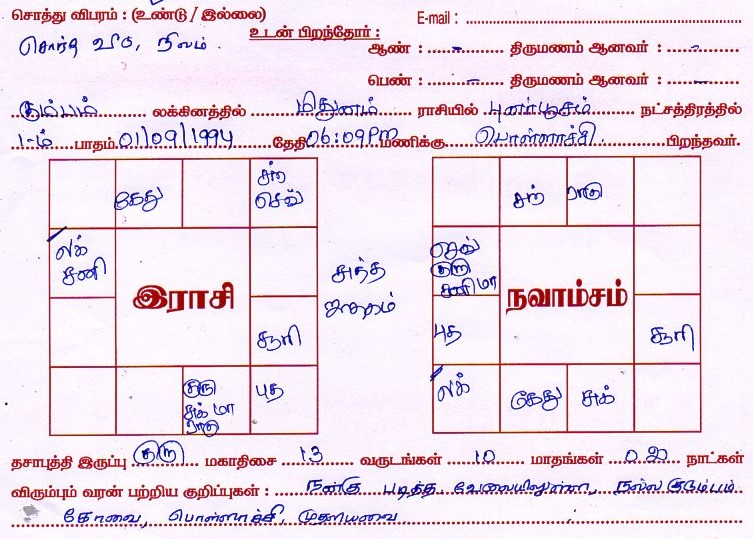 சொத்து விபரம் : (உண்டு / இல்லை) E-mail :
சொந்த வீடு, நிலம். உடன் பிறந்தோர் :
ஆண் : - திருமணம் ஆனவர் : -
பெண் : - திருமணம் ஆனவர் : -
கும்பம் லக்கினத்தில் மிதுனம் ராசியில் புனர்பூசம் நட்சத்திரத்தில்
1-ம் பாதம் 01/09/1994 தேதி 06:09 PM மணிக்கு பொள்ளாச்சி பிறந்தவர்.
சந்
கேது செவ்
சந் ராகு
லக்
சனி
செவ்
குரு
சனி மா
இராசி
சுத்த
ஜாதகம்
நவாம்சம்
சூரி
புத சூரி
குரு
சுக் மா
ராகு
புத
லக் கேது சுக்
தசாபுத்தி இருப்பு குரு மகாதிசை 13 வருடங்கள் 10 மாதங்கள் 02 நாட்கள்
விரும்பும் வரன் பற்றிய குறிப்புகள் : நன்கு படித்த வேலையிலுள்ள, நல்ல குடும்பம்
கோவை, பொள்ளாச்சி, முதலியவை